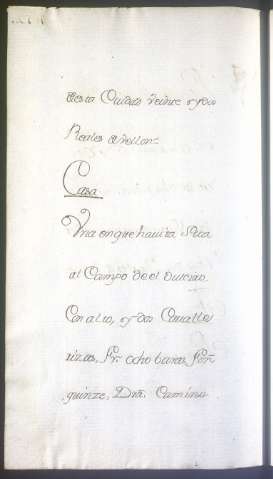 desta Ciudad veinte y dos
Reales de vellon=
Casa
Vna en que havita Sita
al Campo de el
Con alto, y dos Cavalle
rizas, Fr.e ocho baras, Fon.
quinze, Dra. Camino